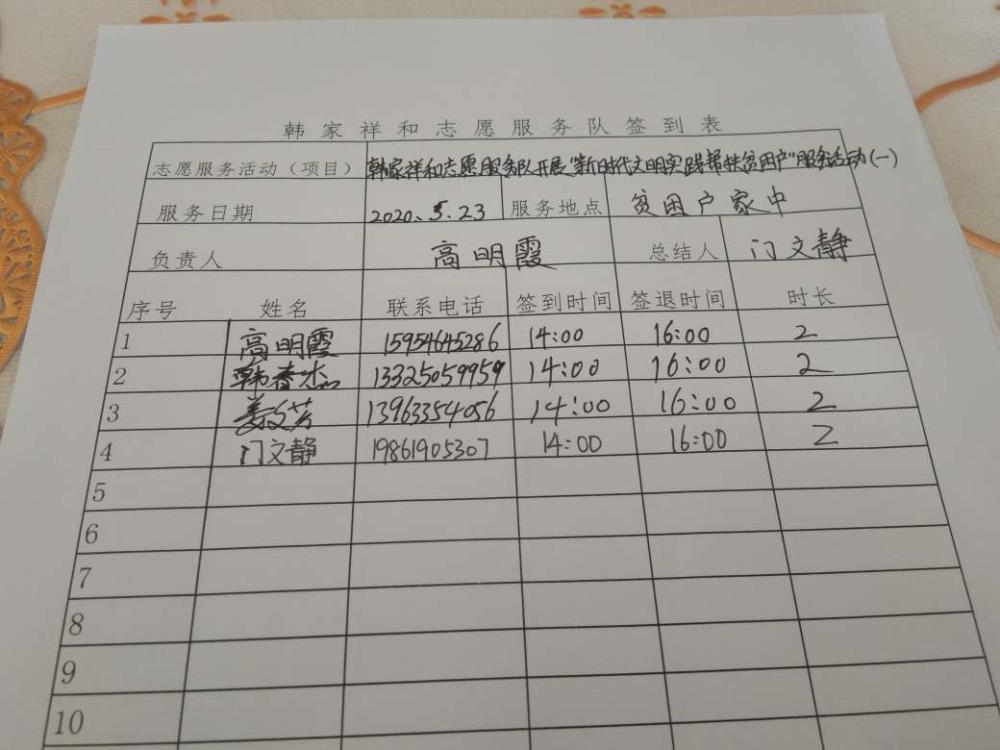 韩家祥和志愿服务队签到表
志愿服务活动（项目） 韩家祥和志愿服务队开展"新时代文明实践帮扶贫困户"服务活动(一)
服务日期 2020.5.23 服务地点 贫困户家中
负责人 高明霞 总结人 门文静
序号 姓名 联系电话 签到时间 签退时间 时长
1 高明霞 15954645286 14:00 16:00 2
2 韩香杰 13325059959 14:00 16:00 2
3 姜文芳 13963354056 14:00 16:00 2
4 门文静 19861905307 14:00 16:00 2
5
6
7
8
9
10